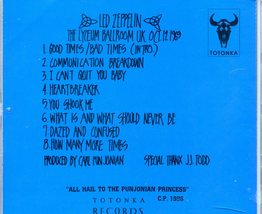 LED ZEPPELIN
THE LYCEUM BALLROOM UK OCT.12.1969
TOTONKA
1. GOOD TIMES/BAD TIMES (INTRO.)
2. COMMUNICATION BREAKDOWN
3. I CAN'T QUIT YOU BABY
4. HEARTBREAKER
5. YOU SHOOK ME
6. WHAT IS AND WHAT SHOULD NEVER BE
7. DAZED AND CONFUSED
8. HOW MANY MORE TIMES
PRODUCED BY CARL PUNJONIAN SPECIAL THANX J.J. TODD
"ALL HAIL TO THE PUNJONIAN PRINCESS"
TOTONKA C.P. 1995
RECORDS